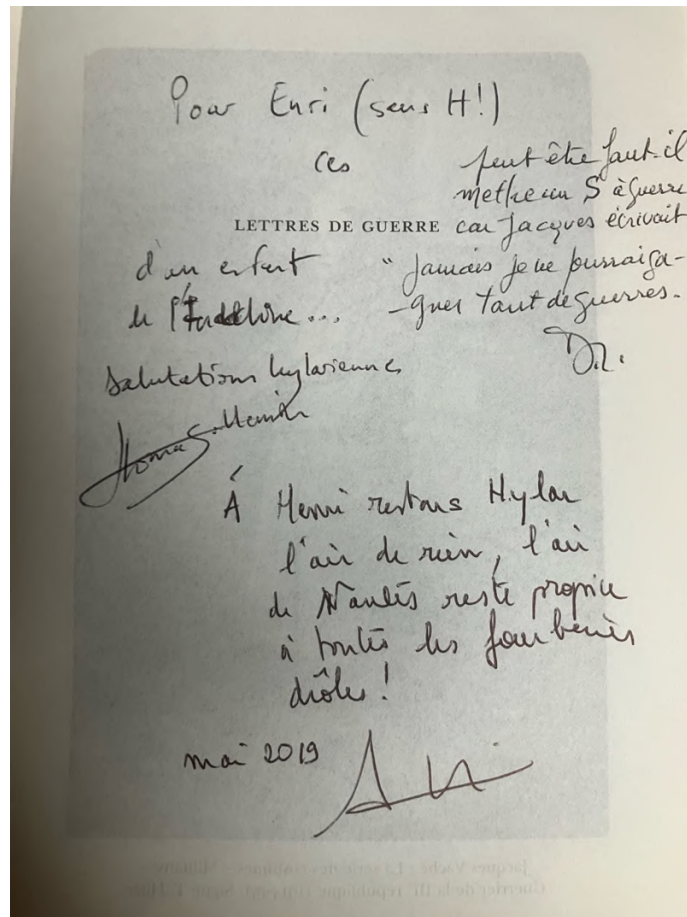 Pour Enri (sans H!)
ces
LETTRES DE GUERRE
d'un enfant
de
Salutations hylariennes
peut être faut-il
mettre un S à guerre
car Jacques écrivait
"Jamais je ne pourrai ga-
-gner tant de guerres.
À Henri restons Hylar
l'air de rien, l'air
de Nantes reste propice
à toutes les fourberies
drôles!
mai 2019